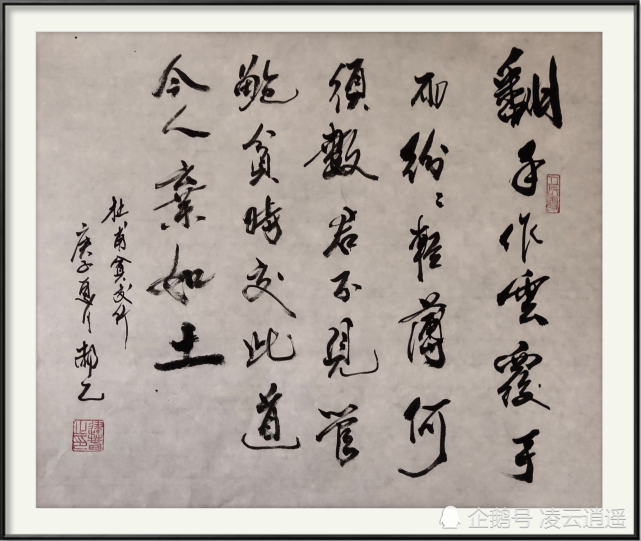 翻手作雲覆手
雨紛〻輕薄何
須數君不見管
鮑貧時交此道
今人棄如土
杜甫貧交行
庚子夏月
企鹅号 凌云逍遥